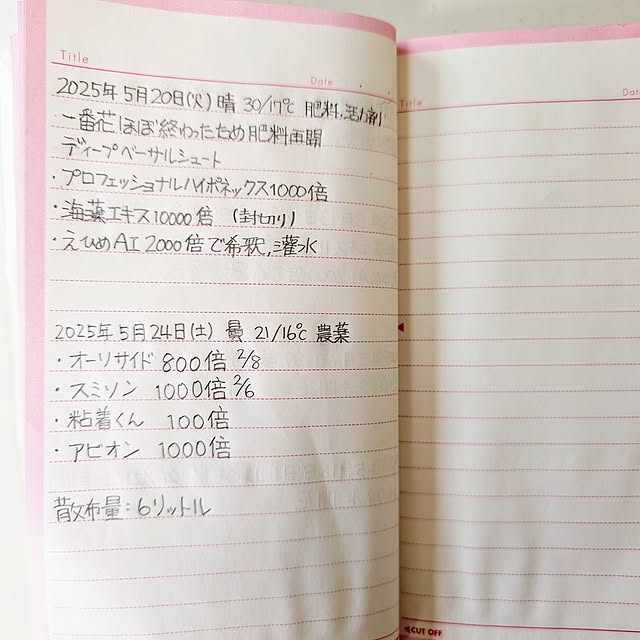 Title
Date
2025年5月20日(火) 晴 30/17℃ 肥料,活力剤
・一番花ほぼ終わったため肥料再開
ディープベーサルシュート
・プロフェッショナルハイポネックス1000倍
・海藻エキス10000倍 (封切り)
・えひめAI 2000倍で希釈,灌水
2025年5月24日(土) 曇 21/16℃ 農薬
・オーソサイド 800倍 2/8
・スミソン 1000倍 2/6
・粘着くん 100倍
・アビオン 1000倍
散布量:6リットル
Title
Dat
CUT OFF